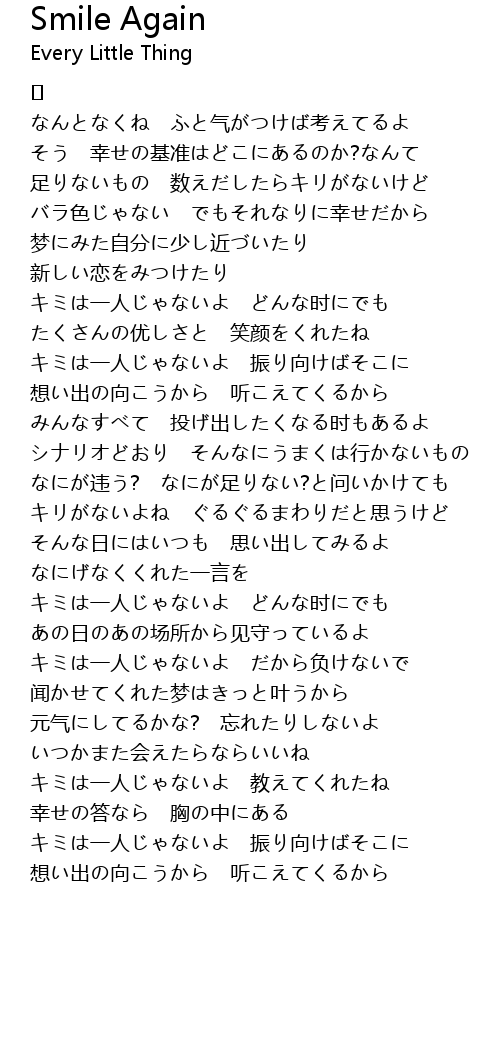 Smile Again
Every Little Thing
[]
なんとなくね　ふと气がつけば考えてるよ
そう　幸せの基准はどこにあるのか?なんて
足りないもの　数えだしたらキリがないけど
バラ色じゃない　でもそれなりに幸せだから
梦にみた自分に少し近づいたり
新しい恋をみつけたり
キミは一人じゃないよ　どんな时にでも
たくさんの优しさと　笑颜をくれたね
キミは一人じゃないよ　振り向けばそこに
想い出の向こうから　听こえてくるから
みんなすべて　投げ出したくなる时もあるよ
シナリオどおり　そんなにうまくは行かないもの
なにが违う?　なにが足りない?と问いかけても
キリがないよね　ぐるぐるまわりだと思うけど
そんな日にはいつも　思い出してみるよ
なにげなくくれた一言を
キミは一人じゃないよ　どんな时にでも
あの日のあの场所から见守っているよ
キミは一人じゃないよ　だから负けないで
闻かせてくれた梦はきっと叶うから
元气にしてるかな?　忘れたりしないよ
いつかまた会えたらならいいね
キミは一人じゃないよ　教えてくれたね
幸せの答なら　胸の中にある
キミは一人じゃないよ　振り向けばそこに
想い出の向こうから　听こえてくるから